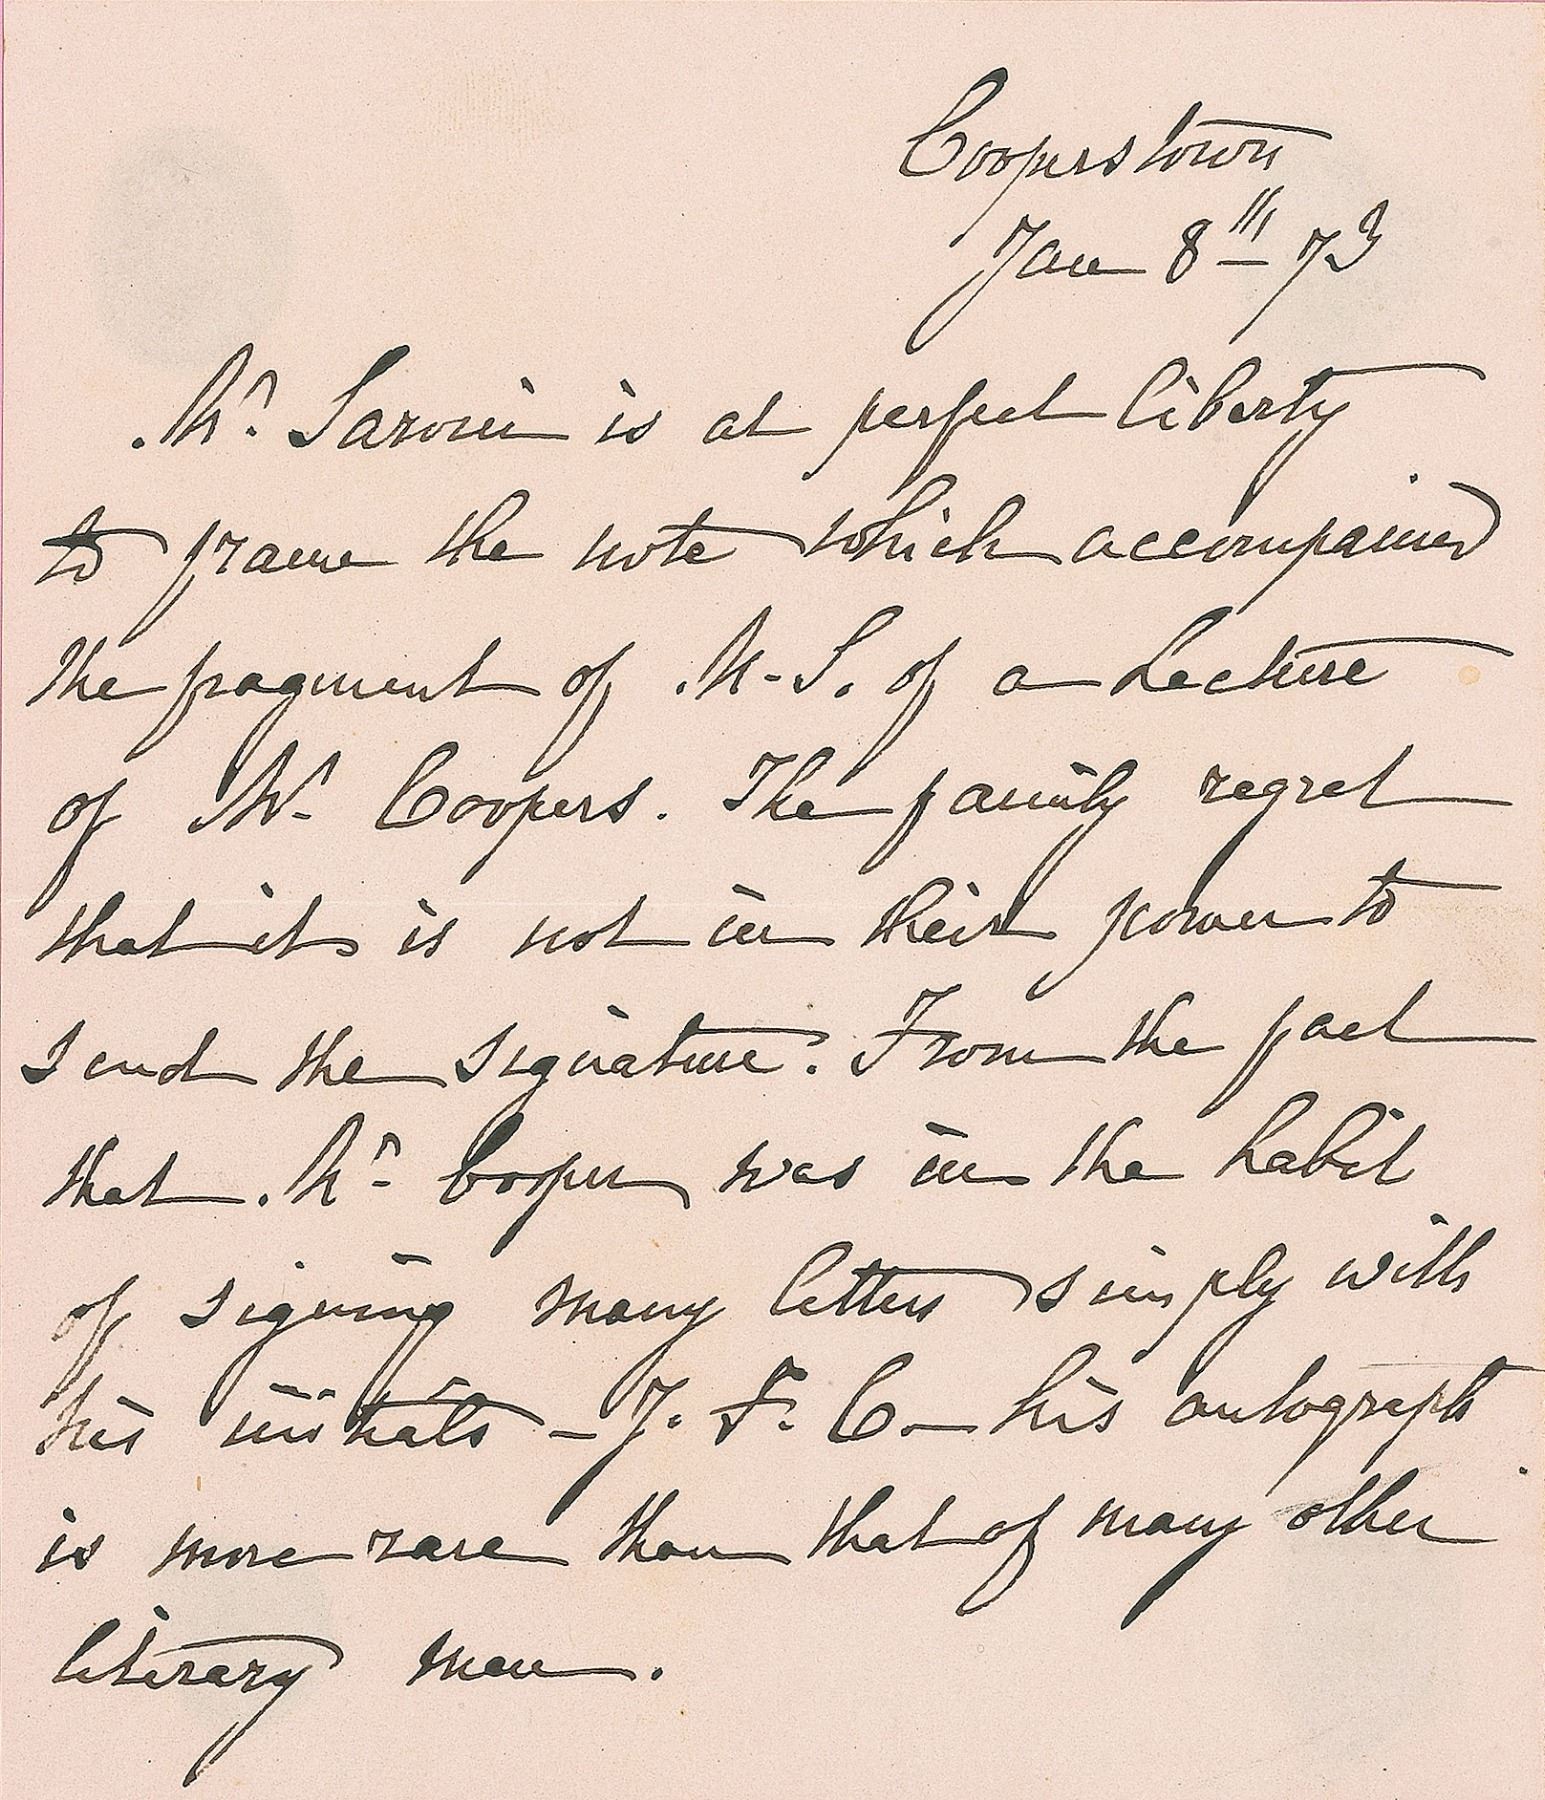 Cooperstown
Jan 8th 73
Mr. is at perfect liberty
to frame the note which accompained
the fragment of M-S. of a Lecture
of Mr. Coopers. The family regret
that it is not in their power to
send the signature. From the fact
that Mr. Cooper was in the habit
of signing many letters simply with
his initials - J. F. C. - his autograph
is more rare than that of many other
literary men.